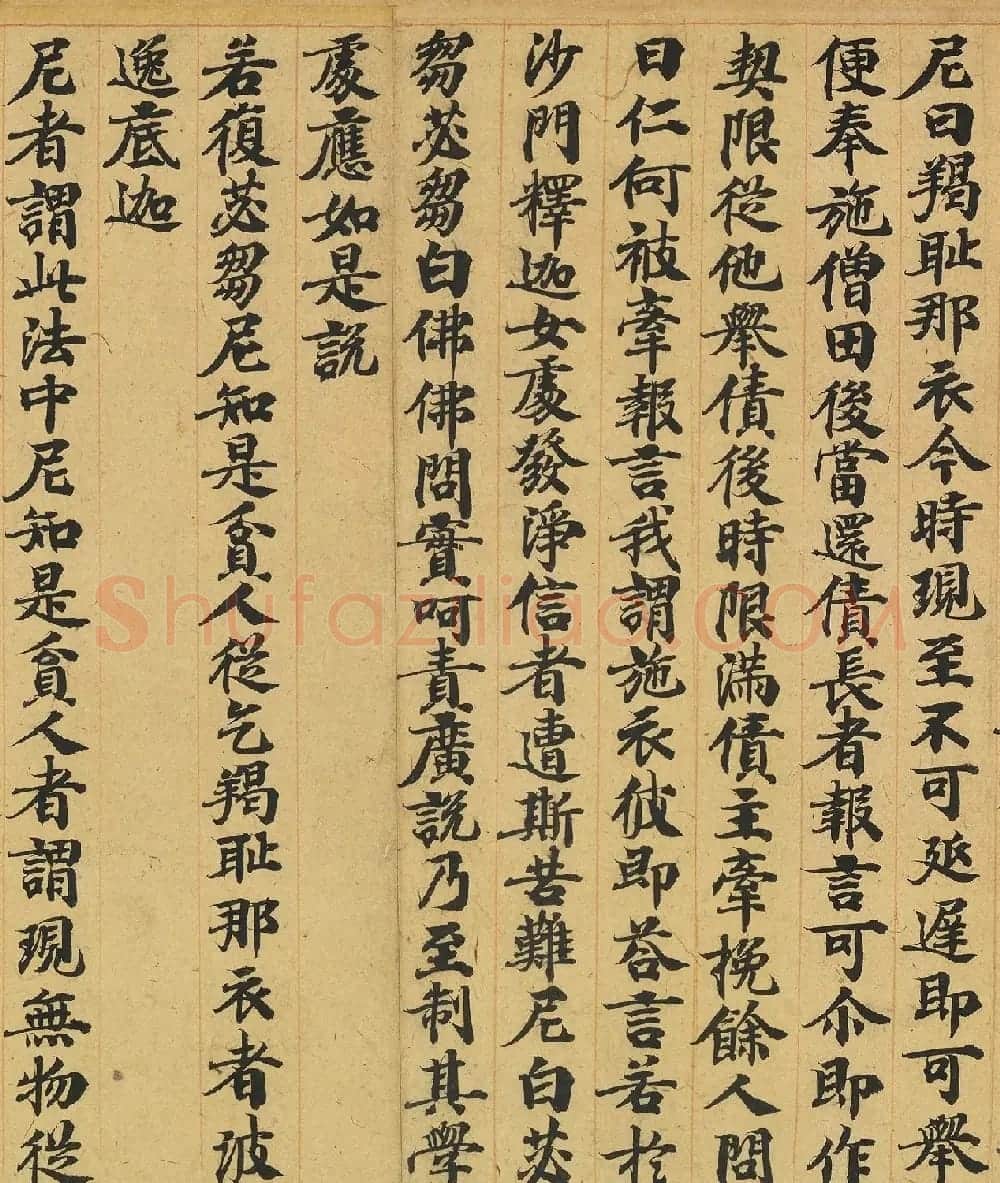 尼曰羯耻那衣今時現至不可延遲即可舉
便奉施僧田後當還債長者報言可尒即作
契限從他舉債後時限滿債主牽挽餘人問
曰仁何被牽報言我謂施衣彼即荅言若於
沙門釋迦女處發淨信者遭斯苦難尼白苾
芻苾芻白佛佛問實呵責廣說乃至制其學
處應如是說
若復苾芻尼知是貧人從乞羯耻那衣者波
逸底迦
尼者謂此法中尼知是貧人者謂現無物從
Shufaziliao.COM